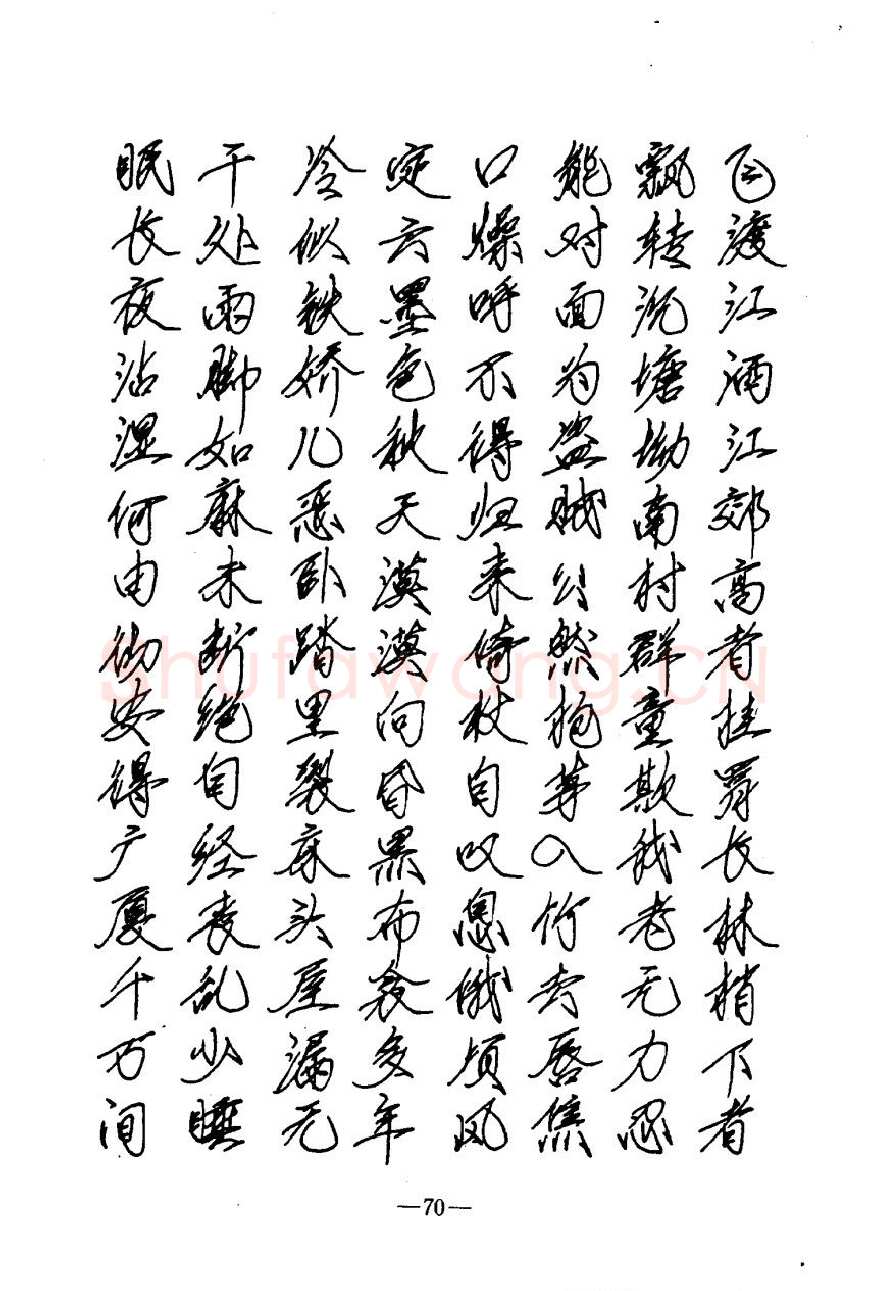 飞渡江洒江郊高者挂罥长林梢下者
飘转沉塘坳南村群童欺我老无力忍
能对面为盗贼公然抱茅入竹去唇焦
口燥呼不得归来倚杖自叹息俄顷风
定云墨色秋天漠漠向昏黑布衾多年
冷似铁娇儿恶卧踏里裂床头屋漏无
干处雨脚如麻未断绝自经丧乱少睡
眠长夜沾湿何由彻安得广厦千万间
—70—
Shufawang.CN